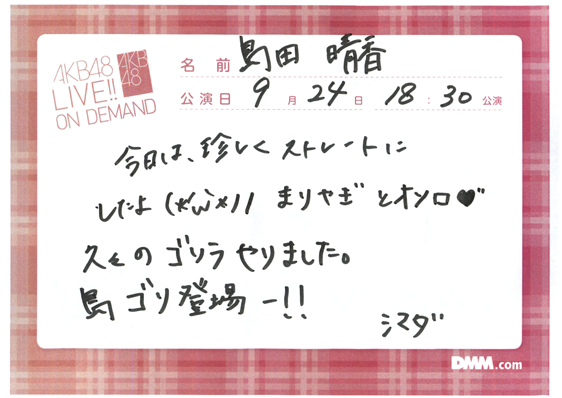 AKB48
LIVE!!
ON DEMAND
AKB
48
名前 島田 晴香
公演日 9月24日 18:30公演
今日は、珍しくストレートに
したよ(*´ω`*)) まりやぎとオソロ♥
久々のゴリラやりました。
島ゴリ登場ー!!
シマダ
DMM.com